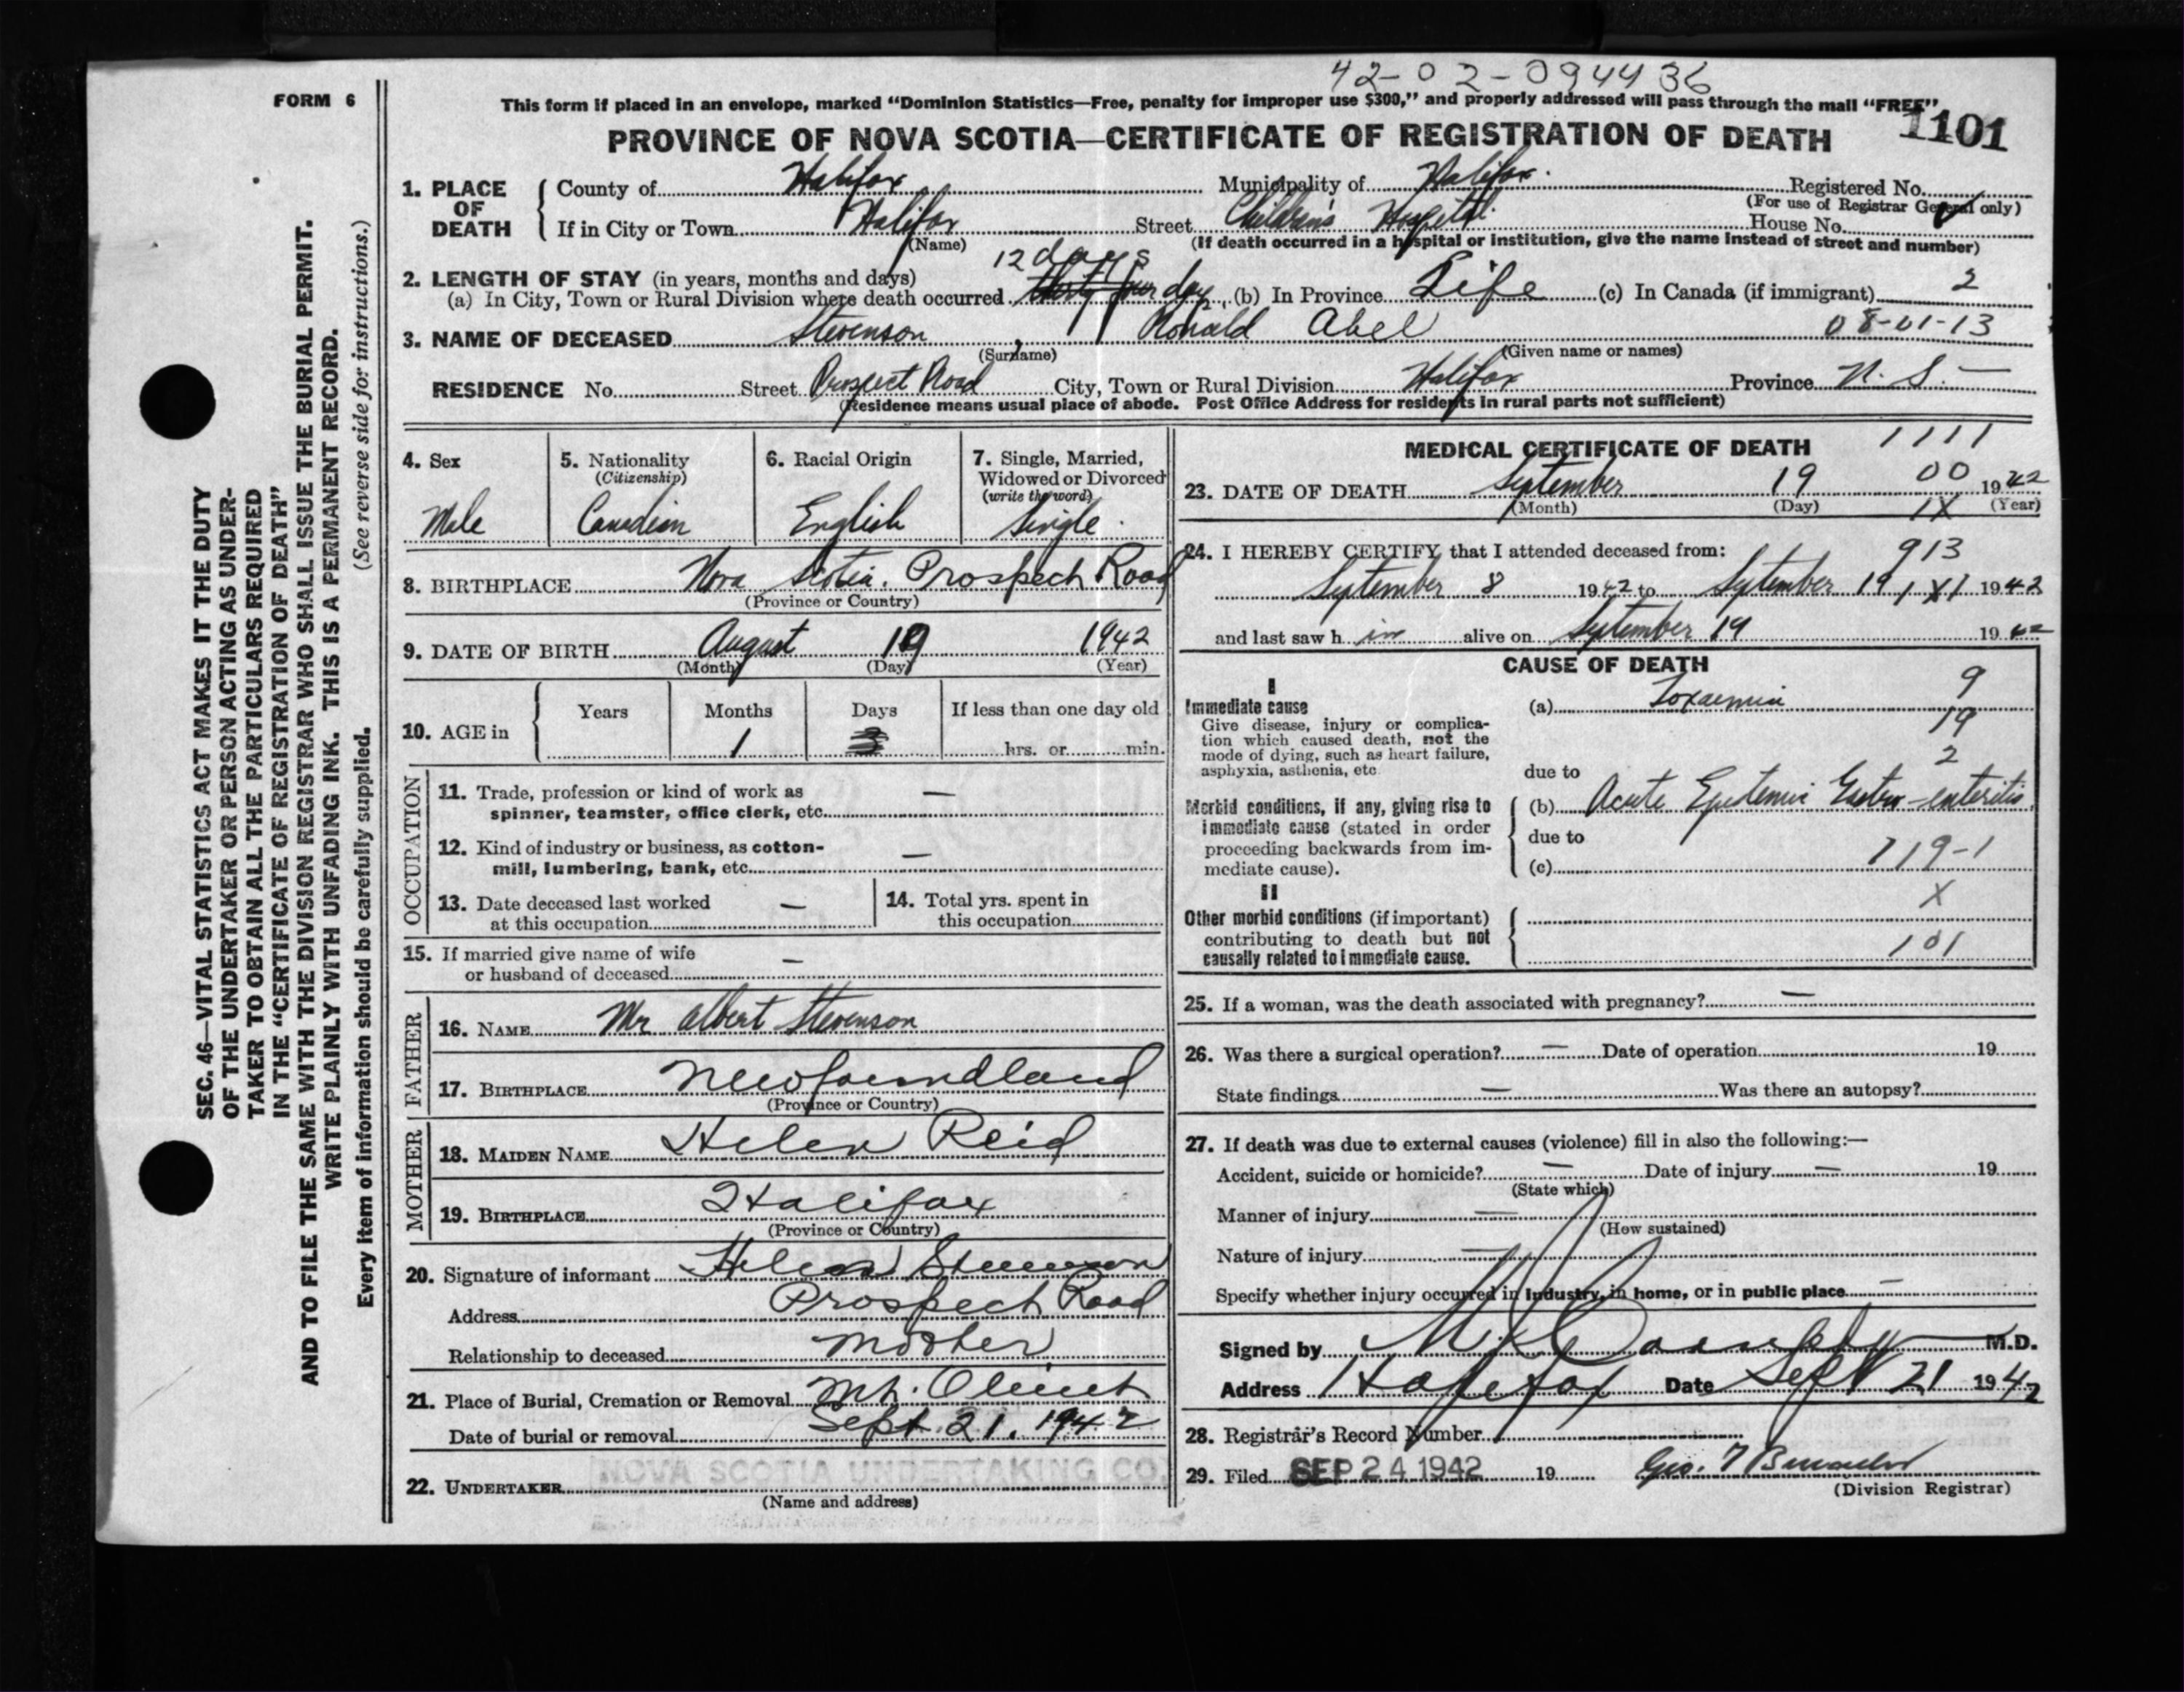 42-02-094436
FORM 6
This form if placed in an envelope, marked "Dominion Statistics—Free, penalty for improper use $300," and properly addressed will pass through the mail "FREE"
1101
PROVINCE OF NOVA SCOTIA—CERTIFICATE OF REGISTRATION OF DEATH
SEC. 46—VITAL STATISTICS ACT MAKES IT THE DUTY
OF THE UNDERTAKER OR PERSON ACTING AS UNDER-
TAKER TO OBTAIN ALL THE PARTICULARS REQUIRED
IN THE "CERTIFICATE OF REGISTRATION OF DEATH"
AND TO FILE THE SAME WITH THE DIVISION REGISTRAR WHO SHALL ISSUE THE BURIAL PERMIT.
WRITE PLAINLY WITH UNFADING INK. THIS IS A PERMANENT RECORD.
Every item of information should be carefully supplied. (See reverse side for instructions.)
1. PLACE OF DEATH
County of Halifax Municipality of Halifax. Registered No.
(For use of Registrar General only)
If in City or Town Halifax Street Children's Hospital. House No.
(Name) (If death occurred in a hospital or institution, give the name instead of street and number)
12 days
2. LENGTH OF STAY (in years, months and days)
(a) In City, Town or Rural Division where death occurred thirty four days (b) In Province Life (c) In Canada (if immigrant) 2
3. NAME OF DECEASED Stevenson, Ronald Abel 08-01-13
(Surname) (Given name or names)
RESIDENCE No. Street Prospect Road City, Town or Rural Division Halifax Province N. S. —
(Residence means usual place of abode. Post Office Address for residents in rural parts not sufficient)
4. Sex
Male
5. Nationality
(Citizenship)
Canadian
6. Racial Origin
English
7. Single, Married,
Widowed or Divorced
(write the word)
Single.
8. BIRTHPLACE Nova Scotia. Prospech Road
(Province or Country)
9. DATE OF BIRTH August 19 1942
(Month) (Day) (Year)
10. AGE in
Years Months Days If less than one day old
1 3 hrs. or min.
OCCUPATION
11. Trade, profession or kind of work as —
spinner, teamster, office clerk, etc.
12. Kind of industry or business, as cotton- —
mill, lumbering, bank, etc.
13. Date deceased last worked —
at this occupation
14. Total yrs. spent in
this occupation
15. If married give name of wife —
or husband of deceased
FATHER
16. NAME Mr Albert Stevenson
17. BIRTHPLACE Newfoundland
(Province or Country)
MOTHER
18. MAIDEN NAME Helen Reid
19. BIRTHPLACE Halifax
(Province or Country)
20. Signature of informant Helen Stevenson
Address Prospech Road
Relationship to deceased Mother
21. Place of Burial, Cremation or Removal Mt. Olivet
Date of burial or removal Sept. 21. 1942
22. UNDERTAKER NOVA SCOTIA UNDERTAKING CO.
(Name and address)
MEDICAL CERTIFICATE OF DEATH 1111
23. DATE OF DEATH September 19 00 1942
(Month) (Day) 1X (Year)
24. I HEREBY CERTIFY that I attended deceased from: 913
September 8 1942 to September 19 1X1 1942
and last saw h im alive on September 19 1942
CAUSE OF DEATH
I
Immediate cause
Give disease, injury or complica-
tion which caused death, not the
mode of dying, such as heart failure,
asphyxia, asthenia, etc
(a) Toxaemia 9
19
2
due to
Morbid conditions, if any, giving rise to
immediate cause (stated in order
proceeding backwards from im-
mediate cause).
(b) Acute Epidemic Gastro-enteritis
due to
(c) 119-1
II
X
Other morbid conditions (if important)
contributing to death but not
causally related to immediate cause.
101
25. If a woman, was the death associated with pregnancy? —
26. Was there a surgical operation? — Date of operation 19
State findings — Was there an autopsy?
27. If death was due to external causes (violence) fill in also the following:—
Accident, suicide or homicide? — Date of injury — 19
(State which)
Manner of injury —
(How sustained)
Nature of injury —
Specify whether injury occurred in industry, in home, or in public place —
Signed by M.D.
Address Halifax Date Sept 21 1942
28. Registrar's Record Number
29. Filed SEP 24 1942 19 Geo. F
(Division Registrar)